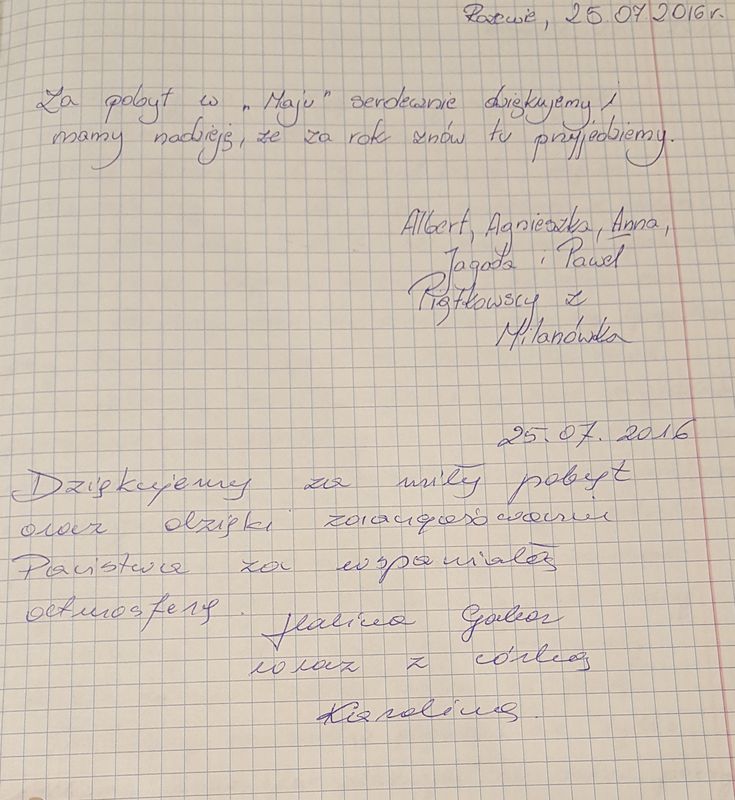 Rozewie, 25.07.2016r.
Za pobyt w „Maju" serdecznie dziękujemy i
mamy nadzieję, że za rok znów tu przyjedziemy.
Albert, Agnieszka, Anna,
Jagoda i Paweł
Piątkowscy z
Milanówka
25.07.2016
Dziękujemy za miły pobyt
oraz dzięki zaangażowaniu
Państwa za wspaniałą
atmosferę.
Halina
wraz z córką
Karoliną.